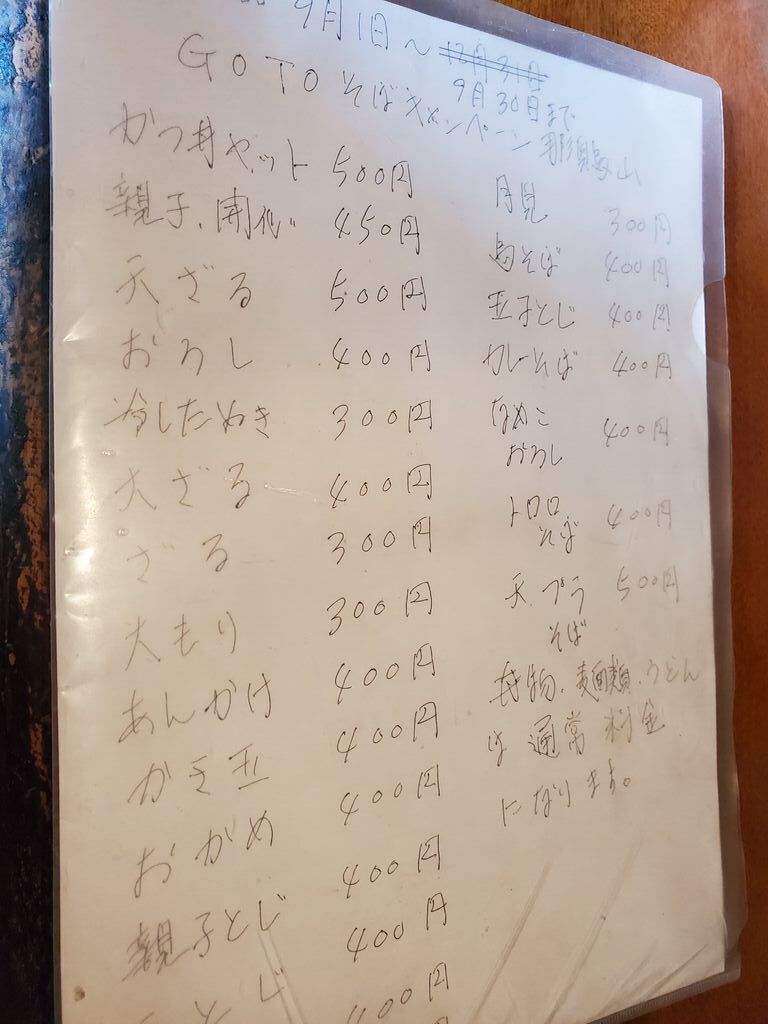 9月1日～12月31日
9月30日まで
GO TO そばキャンペーン 那須烏山
かつ丼セット 500円
親子、開化 450円
天ざる 500円
おろし 400円
冷したぬき 300円
大ざる 400円
ざる 300円
大もり 300円
あんかけ 400円
かき玉 400円
おかめ 400円
親子とじ 400円
とじ 400円
400円
月見 300円
鳥そば 400円
玉子とじ 400円
カレーそば 400円
なめこ 400円
おろし
トロロ 400円
そば
天プラ 500円
そば
丼物、麺類、うどん
は通常料金
になります。